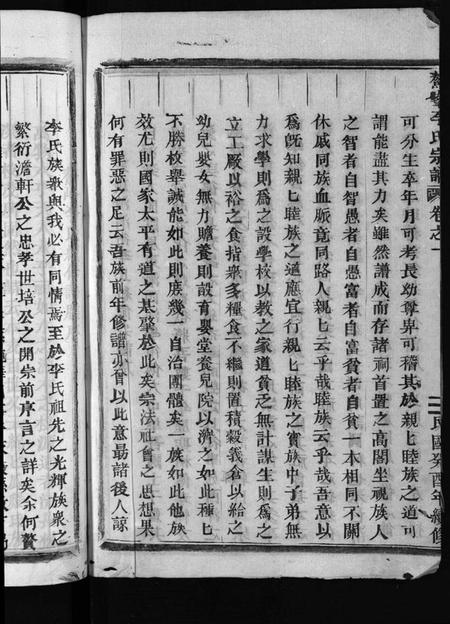 李氏宗譜 卷之一
民國癸酉年續修
可分生卒年月可考長幼尊卑可稽其於親親睦族之道可
謂能盡其力矣雖然譜成而存諸祠首置之高閣坐視族人
之智者自智愚者自愚富者自富貧者自貧一本相同不關
休戚同族血脈竟同路人親七云乎哉睦族云乎哉吾意以
爲旣知親七睦族之道應宜行親七睦族之實族中子弟無
力求學則爲之設學校以教之家道貧乏無計謀生則爲之
立工廠以裕之食指衆多種食不繼則置積穀義倉以給之
幼兒嬰女無力贍養則設育嬰堂養兒院以濟之如此種七
不勝枚舉誠能如此則庶幾一自治團體矣一族如此他族
效尤則國家太平有道之基肇於此矣宗法社會之思想果
何有罪惡之足云吾族前年修譜亦曾以此意最諸後人諒
李氏族衆與我必有同情焉至於李氏祖先之光輝族衆之
繁衍澹軒公之忠孝世培公之開宗前序言之詳矣余何贅